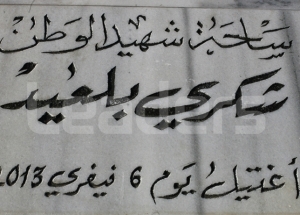 ساحة شهيد الوطن
شكري بلعيد
أغتيل يوم 6 فيفري 2013
Leaders